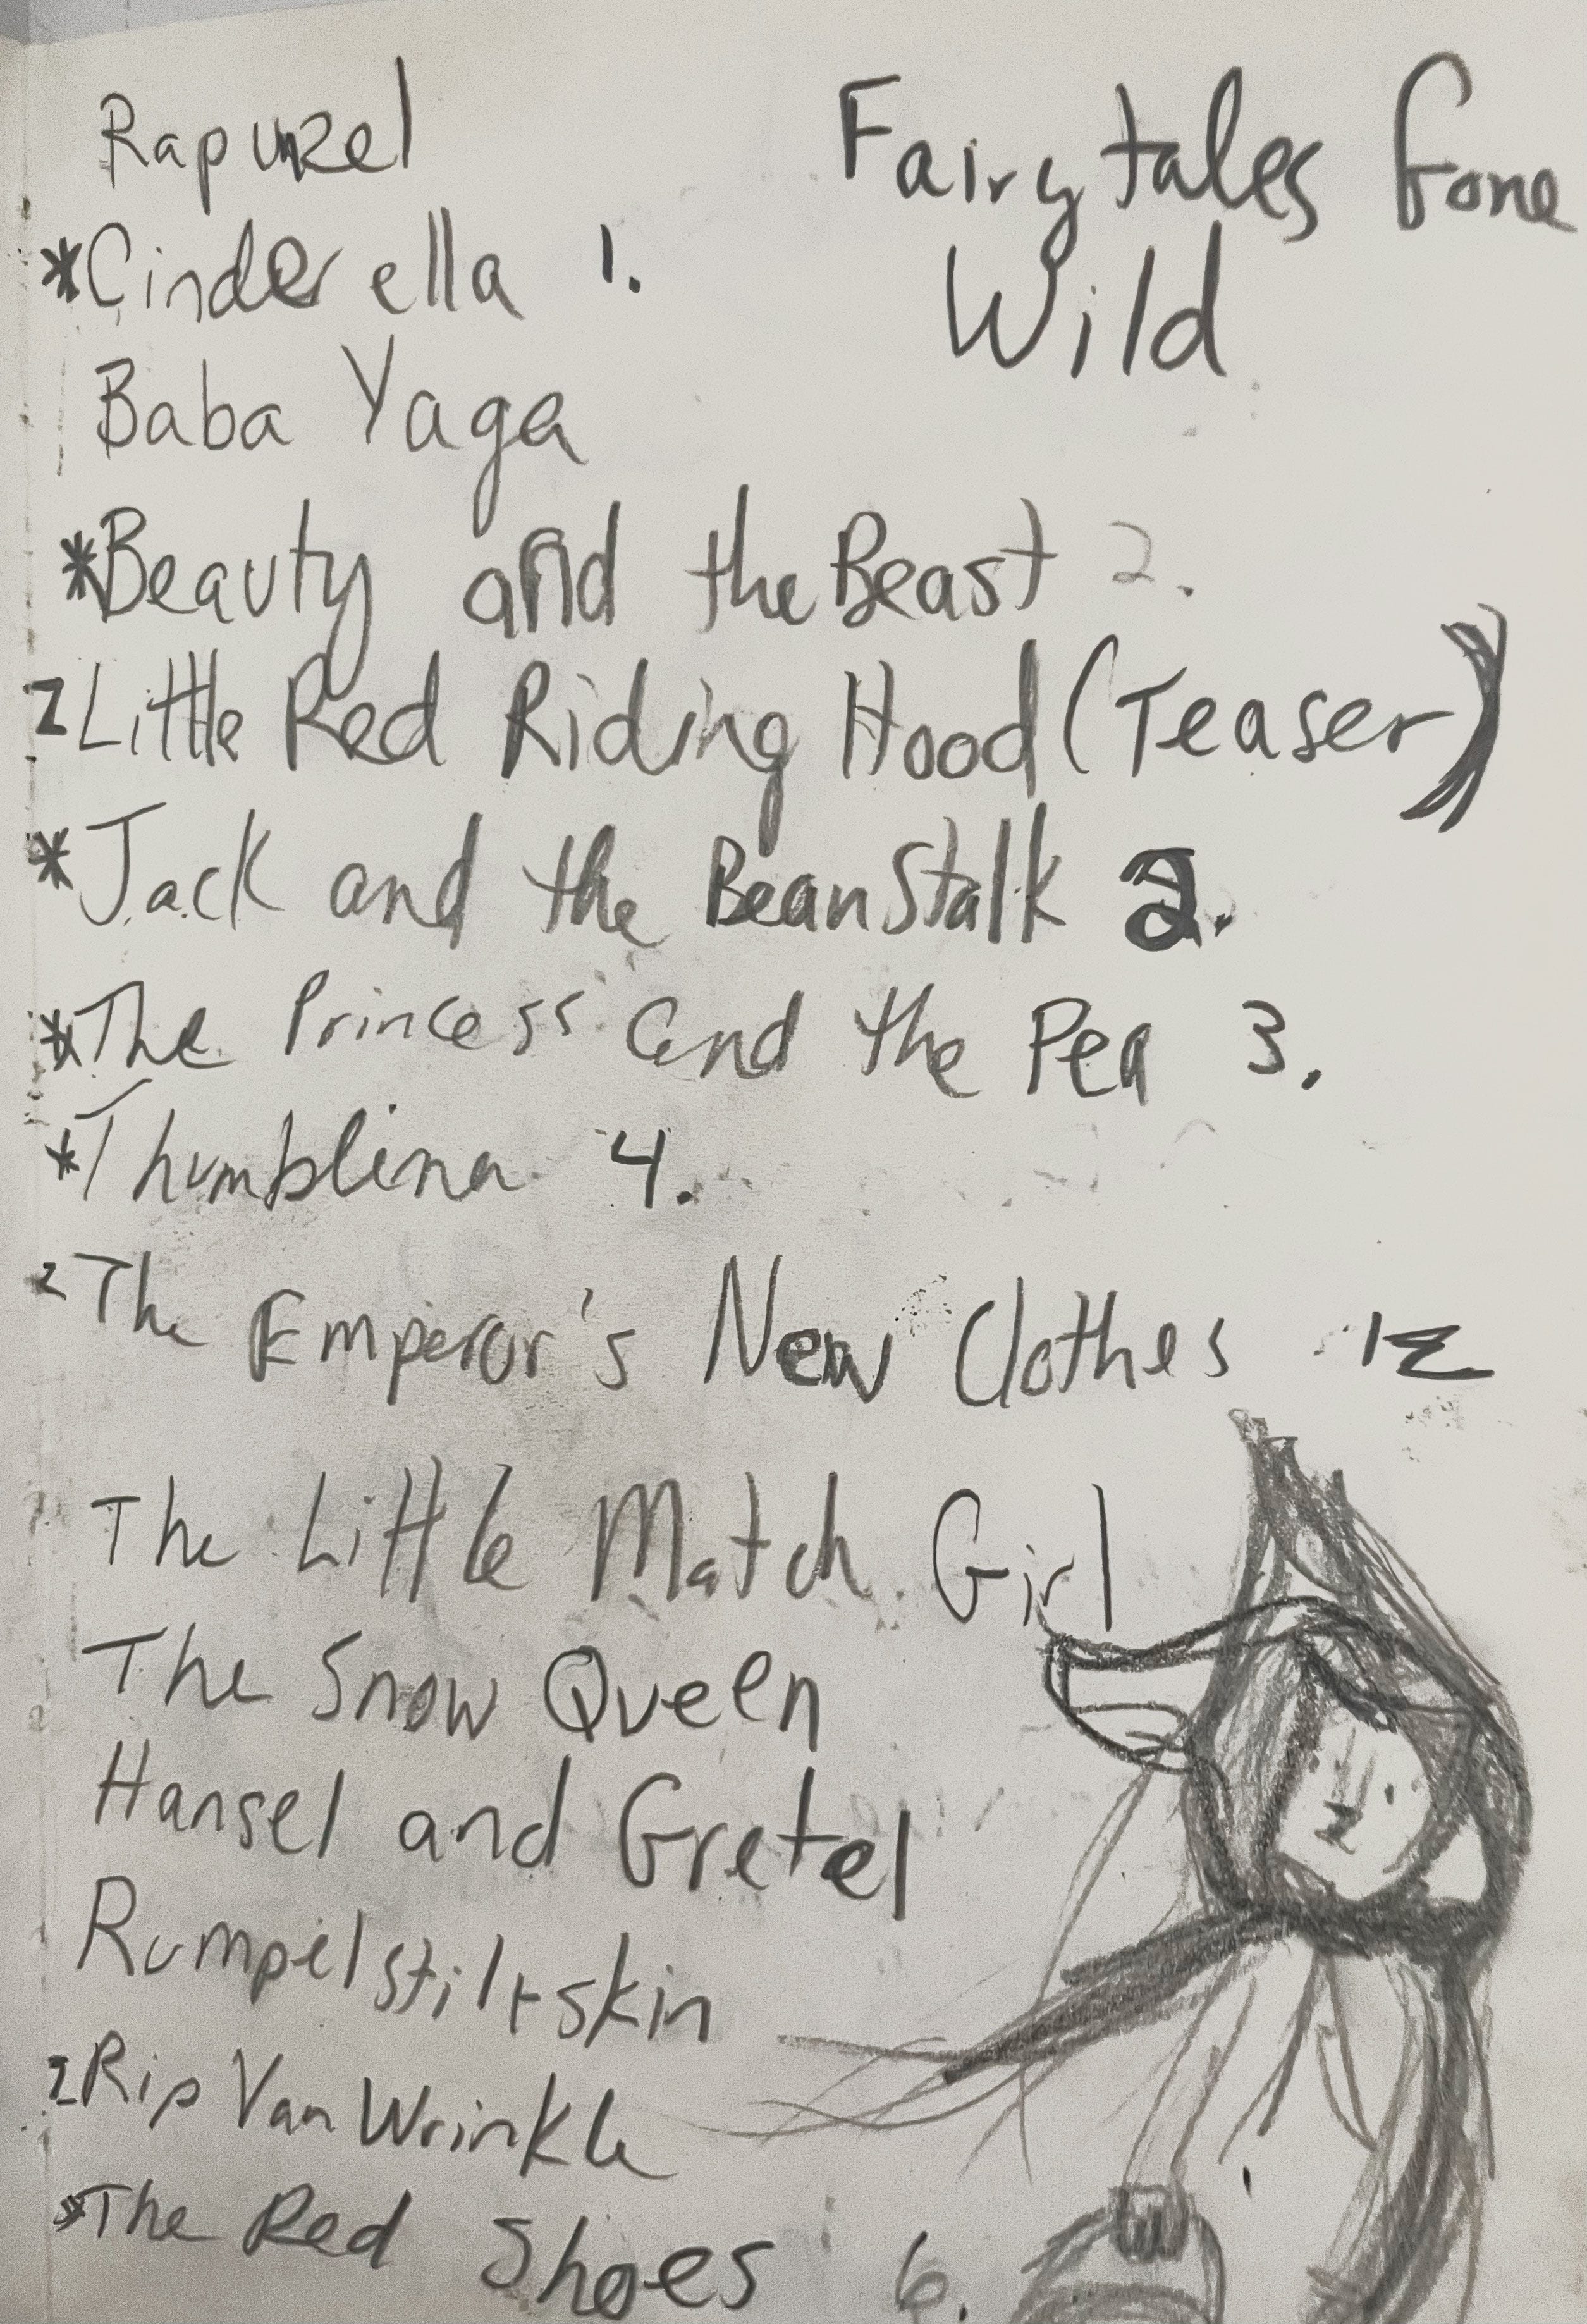 Fairytales Gone
Wild
Rapunzel
*Cinderella 1.
Baba Yaga
*Beauty and the Beast 2.
2 Little Red Riding Hood (Teaser)
*Jack and the BeanStalk 2.
*The Princess and the Pea 3.
*Thumblina 4.
2 The Emperor's New Clothes
The Little Match Girl
The Snow Queen
Hansel and Gretel
Rumpelstiltskin
2 Rip Van Wrinkle
*The Red Shoes 6.